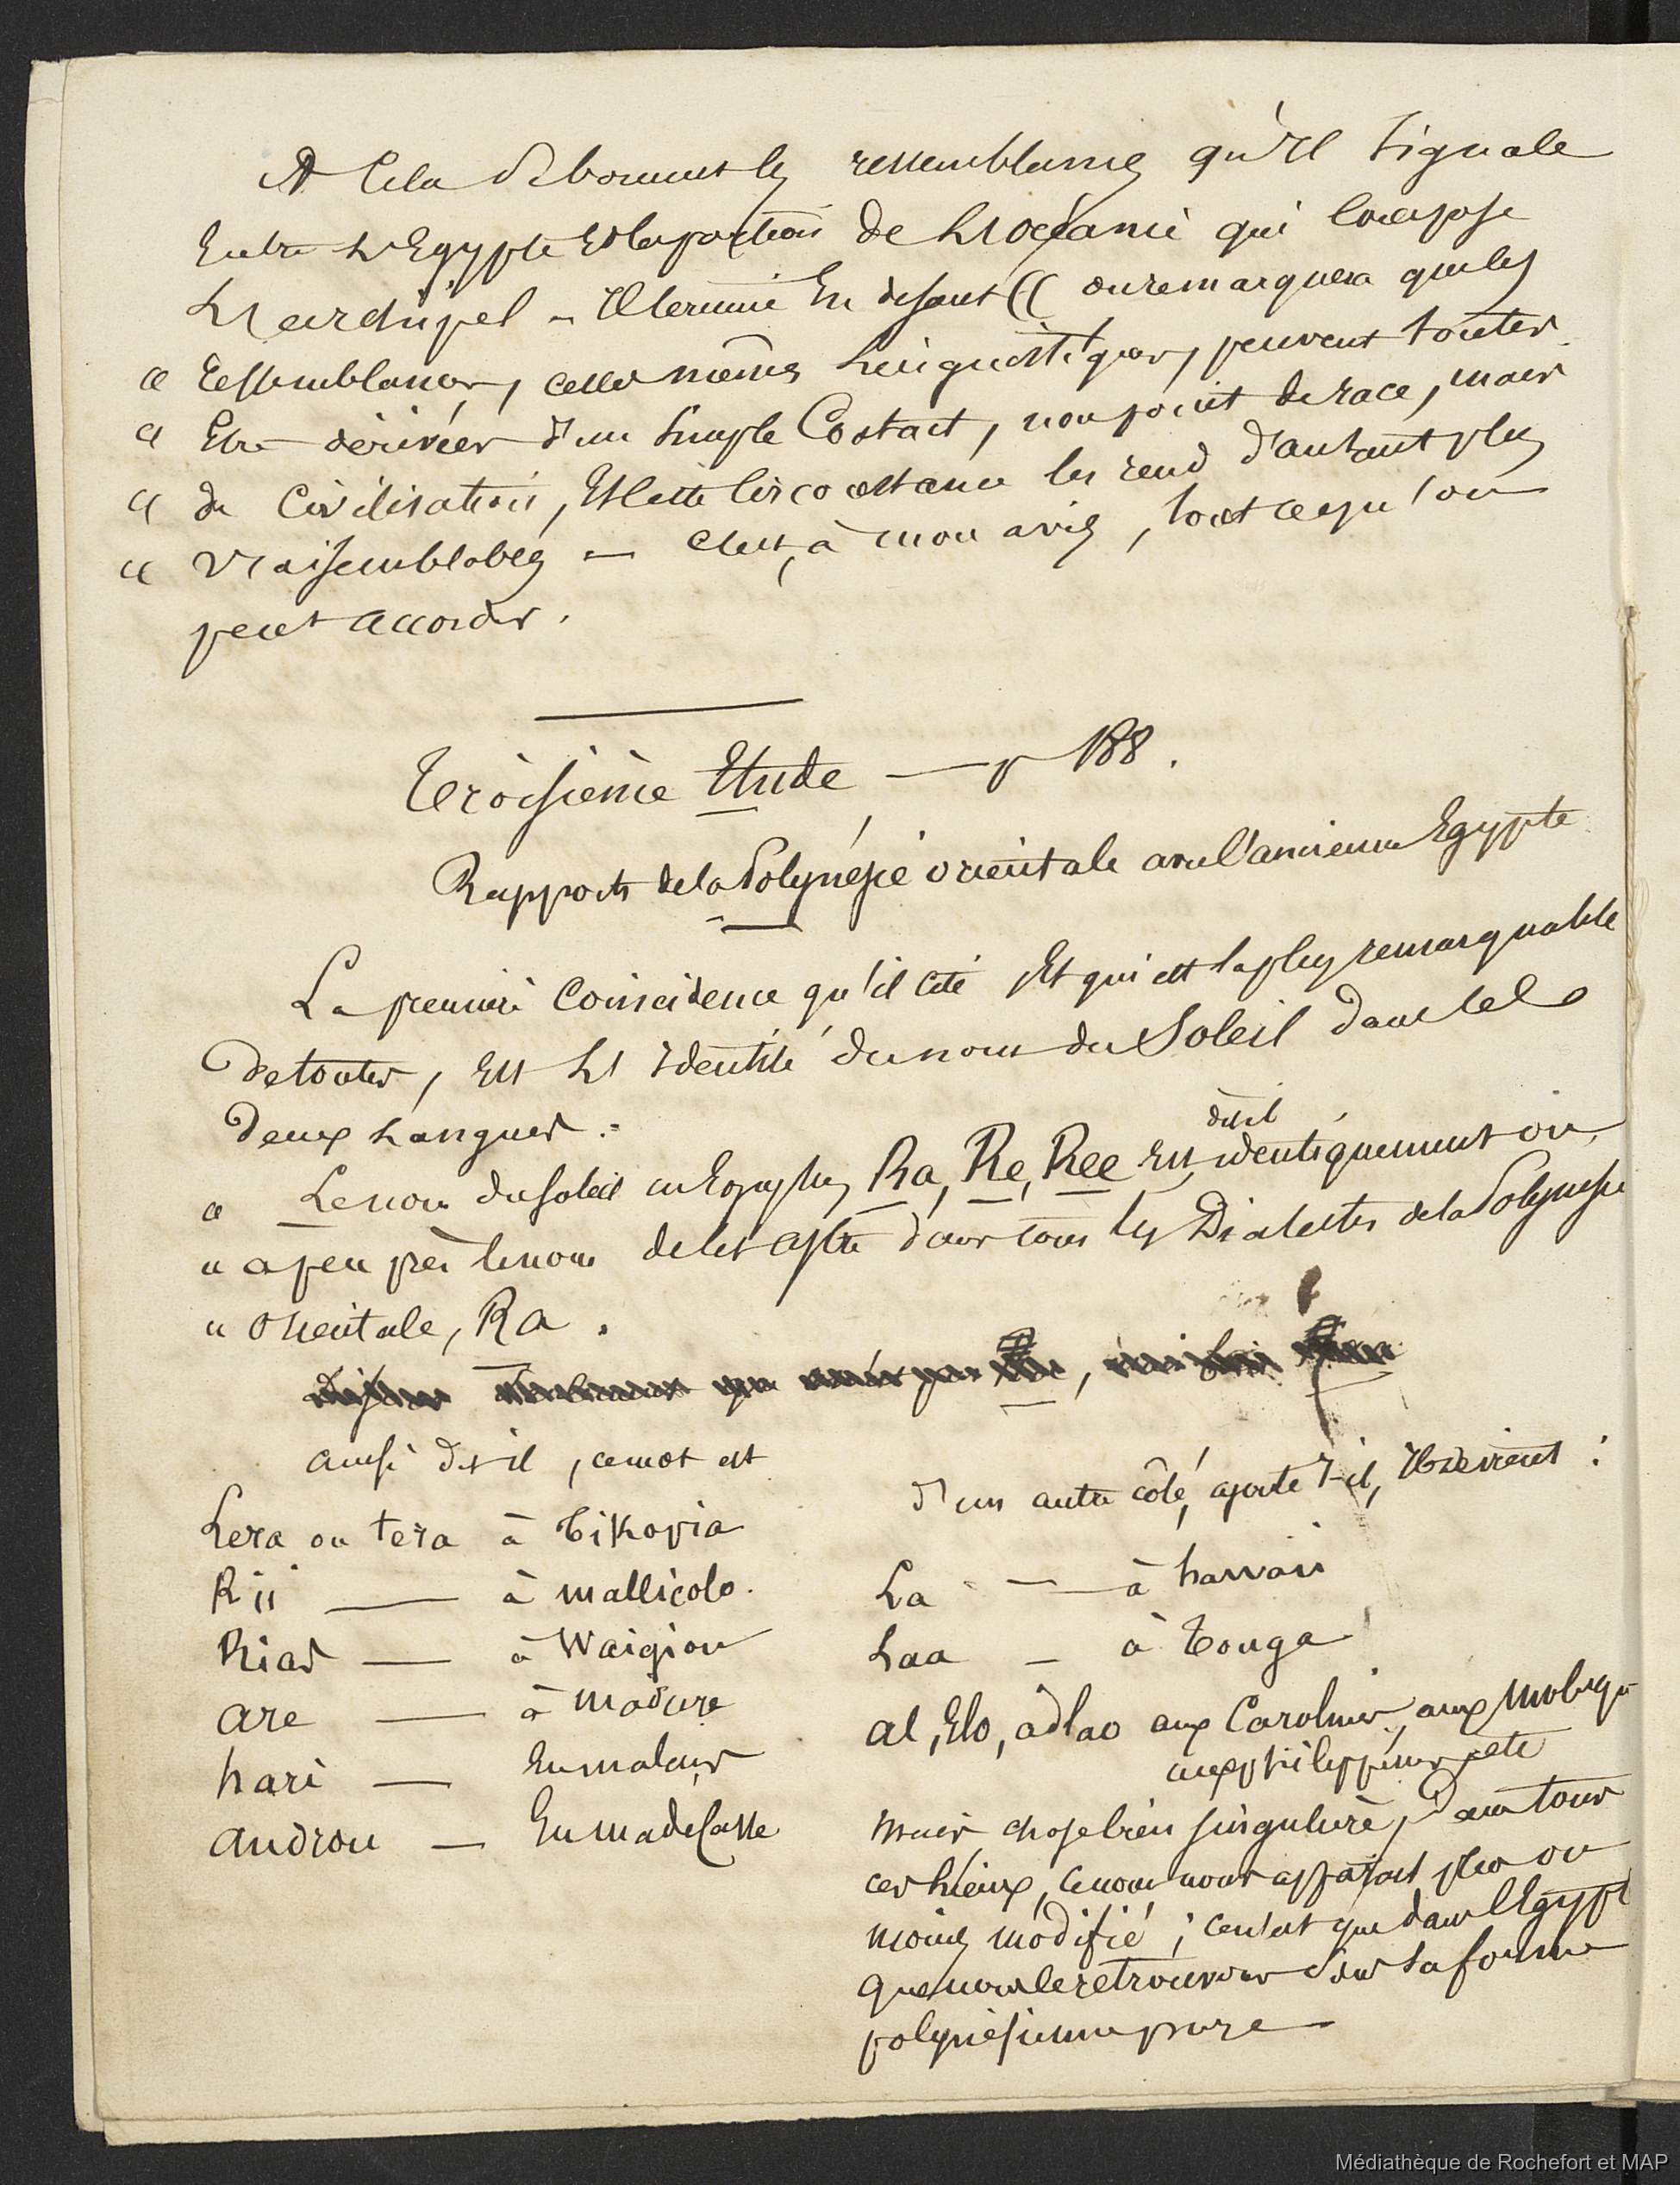 A Cela se bornent les ressemblances qu'il signale
Entre L'Egypte et la portion de L'océanie qui compose
L'archipel – Il termine En disant (( on remarquera que les
" ressemblances, celles mêmes Linguistiques, peuvent toutes
" Etre dérivées d'un simple Contact, non point de race, mais
" de Civilisation, Et cette circonstance les rend d'autant plus
" vraisemblables — C'est, à mon avis, tout ce qu'on
peut accorder.
Troisième Etude, — p 188.
Rapports de la Polynésie orientale avec l'ancienne Egypte
La première Coincidence qu'il cite Et qui est la plus remarquable
de toutes, Est L'identité du nom du Soleil dans les
deux Langues :
dit-il
" Le nom du soleil en Egypte, Ra, Re, Ree Est identiquement ou
" a peu près le nom de cet astre dans tous les Dialectes de la Polynésie
" orientale, Ra.
ainsi dit-il, ce mot est
Lera ou tera à Tikopia
Rii — à Mallicolo.
Rias — à Waigiou
are — à Madure
hari — En malais
androu — En madécasse
d'un autre côté, ajoute t-il, Il devient :
La — à hawaii
Laa — à Tonga
al, Elo, adlao aux Carolines, aux Moluques
aux philippines, etc
Mais chose bien singulière, dans tous
ces Lieux, ce nom nous apparait plus ou
moins modifié ; ce n'est que dans l'Egypte
que nous le retrouvons sous sa forme
polynésienne pure —
Médiathèque de Rochefort et MAP